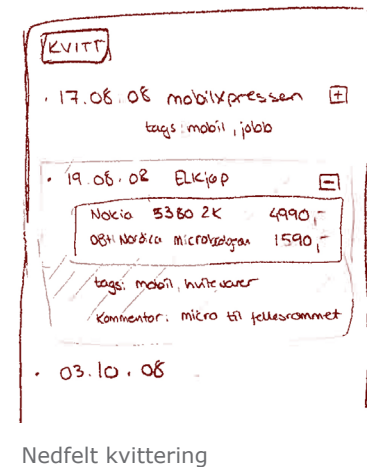 KVITT
· 17.08.08 mobilxpressen +
tags: mobil, jobb
· 19.08.08 ELKjøp −
Nokia 5380 2K 4990,-
Nordica 1590,-
tags: mobil, hvitevarer
Kommentar: micro til fellesrommet
· 03.10.08
Nedfelt kvittering